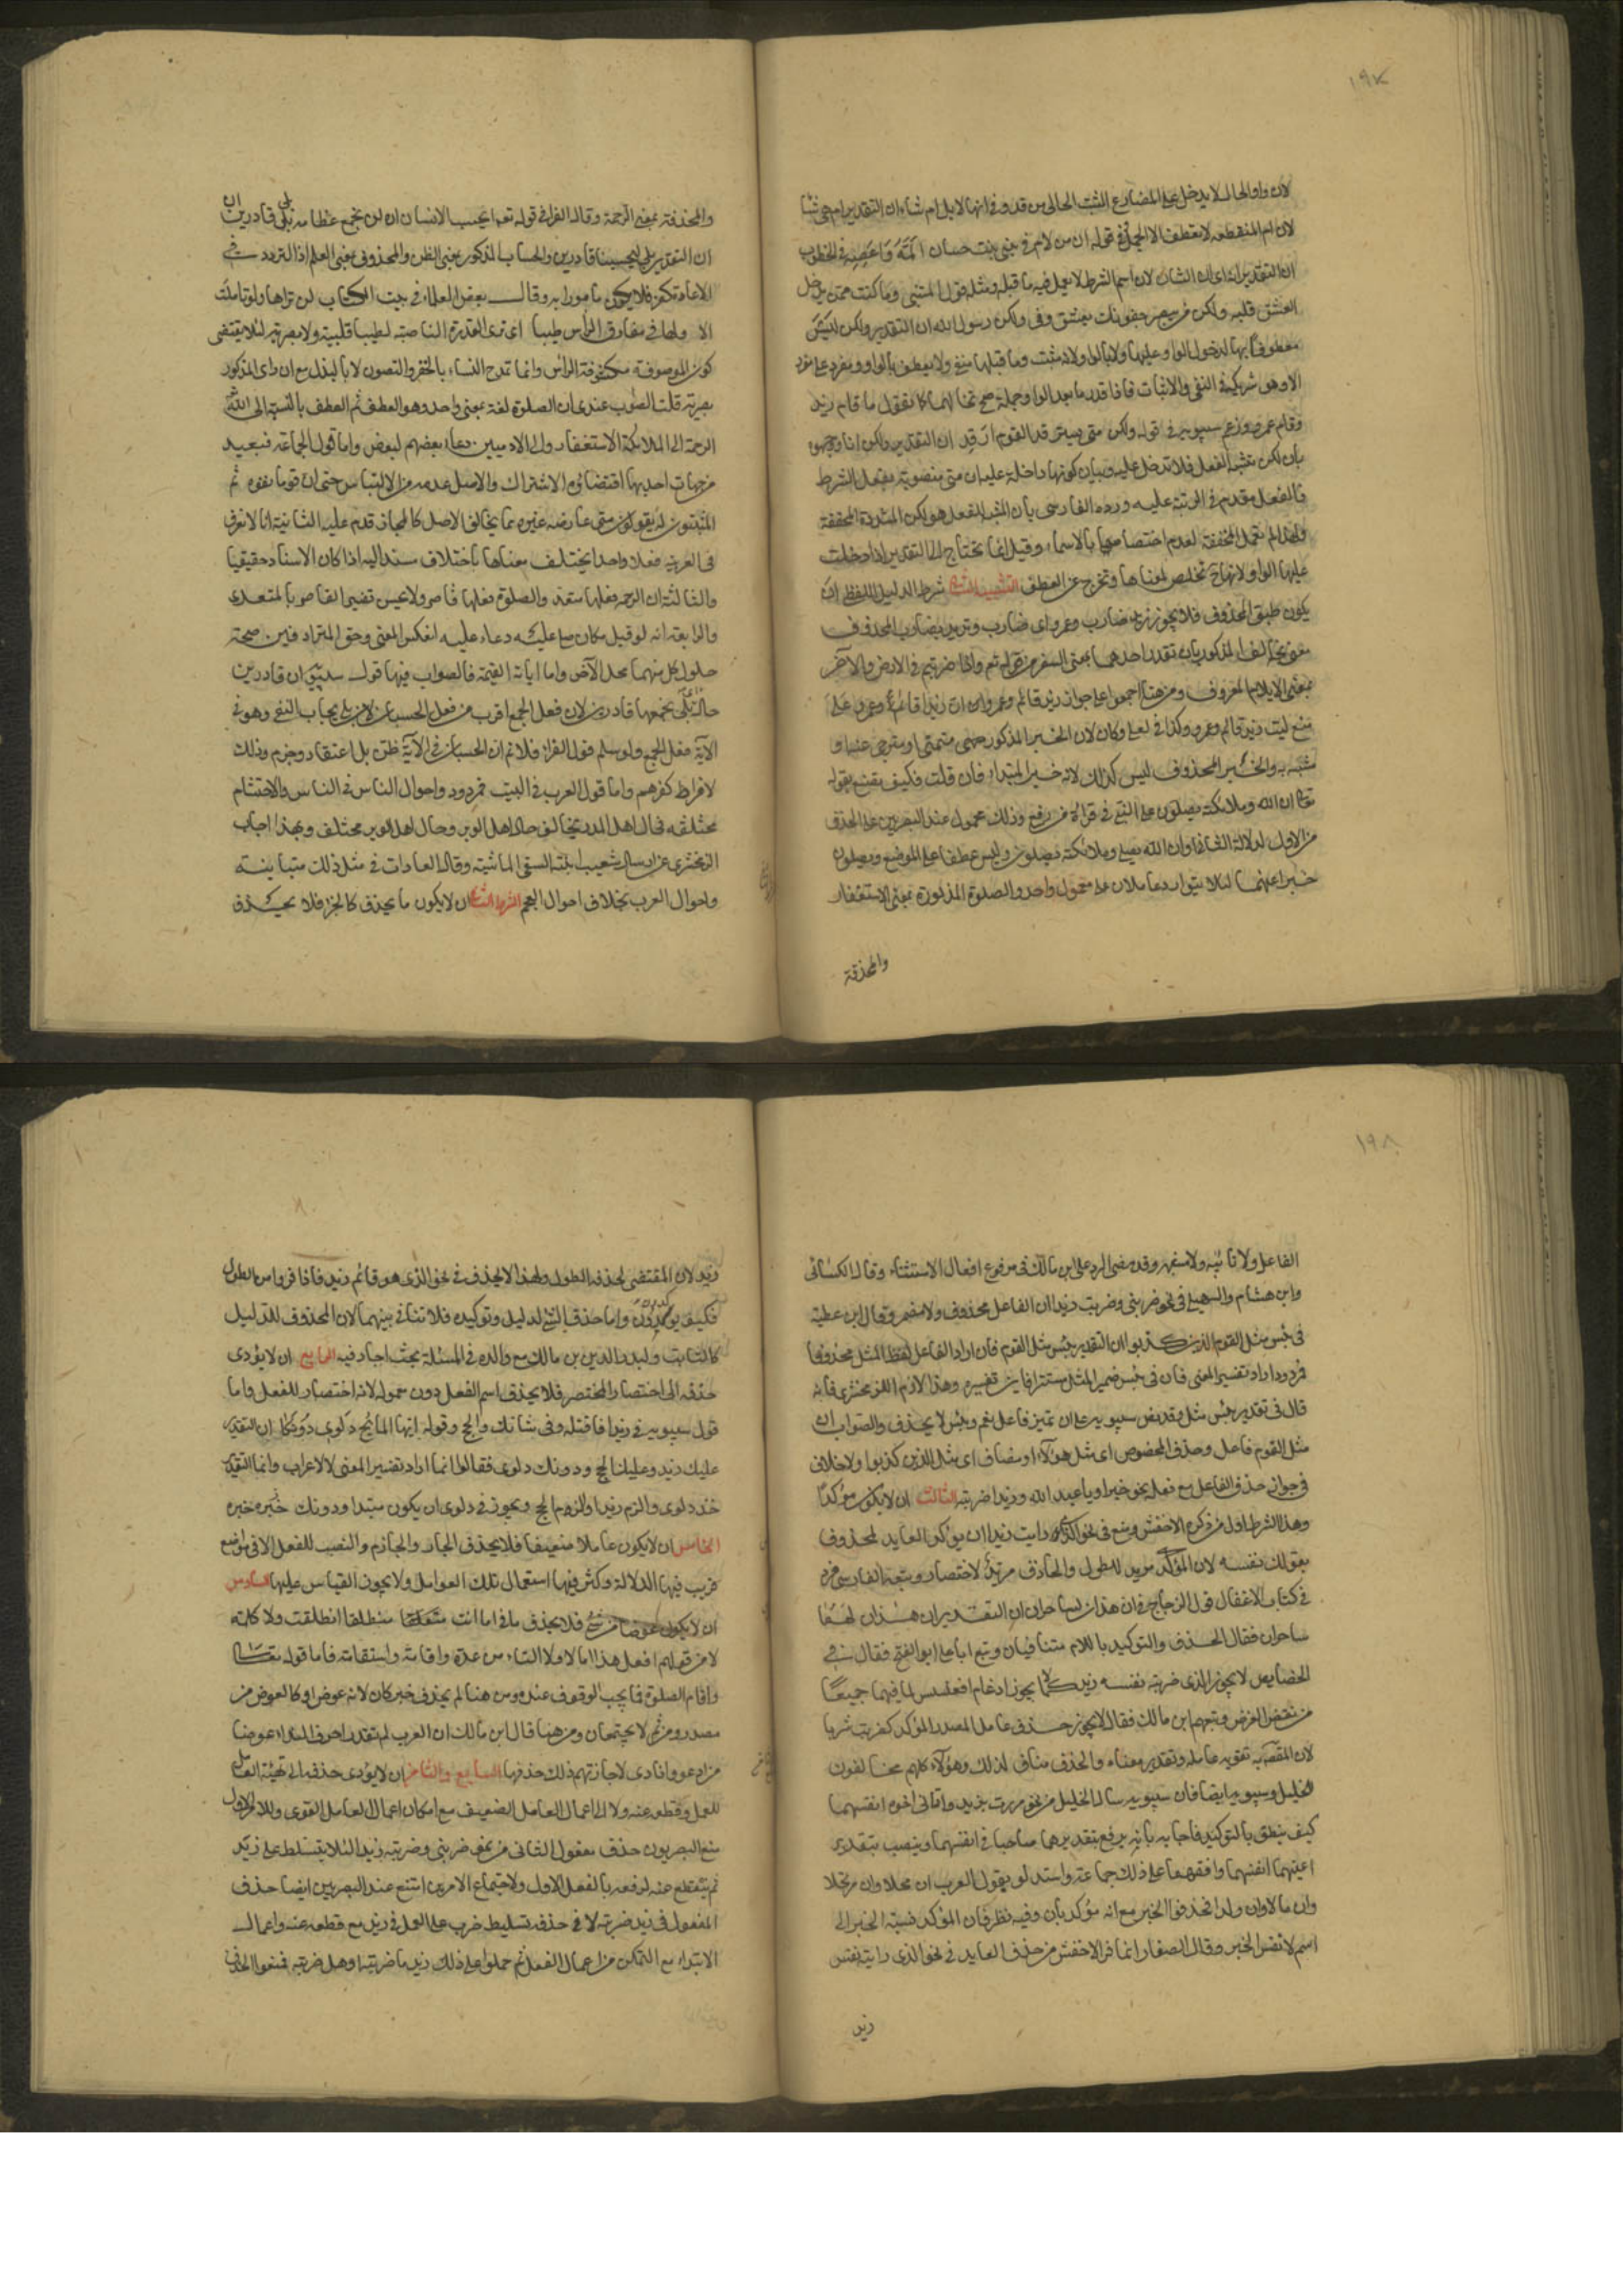 ١٩٧
لان واو الحال لا يدخل على المضارع المثبت الخالى من قد وفى انها لابل ام شاء ان التقدير ام هى شاء
لان ام المنقطعة لا تعطف الا الجمل وفى قوله ان من لام فى بنى بنت حسان المه واعصه فى الخطوب
ان التقدير انه اى ان الشان لان اسم الشرط لا يعمل فيه ما قبله ومثله قول المتنبى وما كنت ممن يدخل
العشق قلبه ولكن من يبصر جفونك يعشق وفى ولكن رسول الله ان التقدير ولكن
لدخول الواو عليها ولا بالواو لانه مثبت وما قبلها منفى ولا يعطف بالواو مفرد على مفرد
الا وهو شريكه فى النفى والاثبات فاذا قدر ما بعد الواو جملة صح تخالفهما كما تقول ما قام زيد
وقام عمرو وزعم سيبويه فى قوله ولكن متى يسترفد القوم ارفد ان التقدير ولكن انا ووجهوه
بان لكن تشبه الفعل فلا تدخل عليه وبيان كونها داخلة عليه ان متى منصوبة بفعل الشرط
فالفعل مقدم فى الرتبة عليه ورده الفارسى بان المشبه بالفعل هو لكن المشددة لا المخففة
ولهذا لم تعمل المخففة لعدم اختصاصها بالاسماء وقيل انما تحتاج الى التقدير اذا دخلت
عليها الواو لانها ح تخلص لمعناها وتخرج عن العطف التنبيه الثانى شرط الدليل اللفظى ان
يكون طبق المحذوف فلا يجوز زيد ضارب وعمرو اى ضارب وتريد بضارب المحذوف
معنى يخالف المذكور بان تقدر احدهما بمعنى السفر من قوله تع واذا ضربتم فى الارض والآخر
بمعنى الايلام المعروف ومن هنا اجمعوا على جواز زيد قائم وعمرو وان زيدا قائم وعمرو وعلى
منع ليت زيدا قائم وعمرو وكذا فى لعل وكان لان الخبر المذكور متمنى او مترجى او
مشبه به والخبر المحذوف ليس كذلك لانه خبر المبتداء فان قلت فكيف تصنع بقوله
تع ان الله وملائكته يصلون على النبى فى قراءة من رفع وذلك محمول عند البصريين على الحذف
من الاول لدلالة الثانى اى ان الله يصلى وملائكته يصلون وليس عطفا على الموضع ويصلون
خبرا عنهما لئلا يتوارد عاملان على معمول واحد والصلوة المذكورة بمعنى الاستغفار
والمحذوفة
والمحذوفة بمعنى الرحمة وقال الفراء فى قوله تع ايحسب الانسان ان لن نجمع عظامه بلى قادرين ان
ان التقدير بلى ليحسبنا قادرين والحساب المذكور بمعنى الظن والمحذوف بمعنى العلم اذ التردد فى
الاعادة كفر فلا يكون مامورا به وقال بعض العلماء فى بيت الكتاب لن تراها ولو تاملت
الا ولها فى مفارق الراس طيبا اى ترى المقدرة الناصبة لطيبا قلبية لا بصرية لئلا يقتضى
كون الموصوفة مكشوفة الراس وانما تمدح النساء بالخفر والتصون لا بالتبذل مع ان راى المذكور
بصرية قلت الصواب عندى ان الصلوة لغة بمعنى واحد وهو العطف ثم العطف بالنسبة الى الله
الرحمة والى الملائكة الاستغفار والى الادميين دعاء بعضهم لبعض واما قول الجماعة فبعيد
من جهات احديها اقتضاؤه الاشتراك والاصل عدمه من الالتباس حتى ان قوما نفوه ثم
المثبتون له يقولون متى عارضه غيره مما يخالف الاصل كالمجاز قدم عليه الثانية انا لا نعرف
فى العربية فعلا واحدا يختلف معناه باختلاف المسند اليه اذا كان الاسناد حقيقيا
والثالثة ان الرحمة فعلها متعد والصلوة فعلها قاصر ولا يحسن تفسير القاصر بالمتعدى
والرابعة انه لو قيل مكان صلى عليه دعا عليه انعكس المعنى وحق المترادفين صحة
حلول كل منهما محل الآخر واما اية القيمة فالصواب فيها قول سيبويه ان قادرين
حال اى بلى نجمعها قادرين لان فعل الجمع اقرب من فعل الحسبان ولان بلى ايجاب النفى وهو فى
الآية فعل الجمع ولو سلم قول الفراء فلا نم ان الحسبان فى الآية ظن بل اعتقاد وجزم وذلك
لافراط كفرهم واما قول العرب فى البيت فمردود واحوال الناس فى اللباس والاحتشام
مختلفة فحال اهل المدر يخالف حال اهل الوبر وحال اهل الوبر مختلف وبهذا اجاب
الزمخشرى عن ارسال شعيب ابنته لسقى الماشية وقال العادات فى مثل ذلك متباينة
واحوال العرب بخلاف احوال العجم الشرط الثانى ان لا يكون ما يحذف كالجزء فلا يحذف
١٩٨
الفاعل ولا نائبه ولا مشبهه وقد مضى الرد على ابن مالك فى مرفوع افعال الاستثناء وقال الكسائى
وابن هشام والسهيلى فى نحو ضربنى وضربت زيدا ان الفاعل محذوف لا مضمر وقال ابن عطية
فى بئس مثل القوم الذين كذبوا ان التقدير بئس المثل مثل القوم فان اراد ان الفاعل لفظ المثل محذوفا
فمردود وان اراد تفسير المعنى وان فى بئس ضمير المثل مستترا فاين تفسيره وهذا لازم للزمخشرى فانه
قال فى تقدير بئس مثلا وقد نص سيبويه على ان تمييز فاعل نعم وبئس لا يحذف والصواب ان
مثل القوم فاعل وحذف المخصوص اى مثل هؤلاء او مضاف اى مثل الذين كذبوا ولا خلاف
فى جواز حذف الفاعل مع فعله نحو خيرا ويا عبد الله وزيدا ضربته الثالث ان لا يكون مؤكدا
وهذا الشرط اول من ذكره الاخفش ومنع فى نحو الذى رايت زيد ان يؤكد العايد المحذوف
بقولك نفسه لان المؤكد مريد للطول والحاذف مريد للاختصار وتبعه الفارسى فرد
فى كتاب الاغفال قول الزجاج فى ان هذان لساحران ان التقدير ان هذان لهما
ساحران فقال الحذف والتوكيد باللام متنافيان وتبع ابا على ابو الفتح فقال فى
الخصايص لا يجوز الذى ضربته نفسه زيد كما لا يجوز ادغام اقعنسس لما فيهما جميعا
من نقض الغرض وتبعهم ابن مالك فقال لا يجوز حذف عامل المصدر المؤكد كضربت ضربا
لان المقصد به تقوية عامله وتقدير معناه والحذف مناف لذلك وهؤلاء كلهم مخالفون
للخليل وسيبويه ايضا فان سيبويه سال الخليل عن نحو مررت بزيد واتانى اخوه انفسهما
كيف ينطق بالتوكيد فاجابه بانه يرفع بتقدير هما صاحباى انفسهما وينصب بتقدير
اعنيهما انفسهما ووافقهما على ذلك جماعة واستدلوا بقول العرب ان محلا وان مرتحلا
وان مالا وان ولدا فحذفوا الخبر مع انه مؤكد بان وفيه نظر فان المؤكد نسبة الخبر الى
اسم لا نفس الخبر وقال الصفار انما فر الاخفش من حذف العايد فى نحو الذى رايته نفسه
زيد
زيد لان المقتضى لحذفه الطول ولهذا لا يحذف فى نحو الذى هو قائم زيد فاذا فروا من الطول
فكيف يؤكدون واما حذف الشئ لدليل وتوكيده فلا تنافى بينهما لان المحذوف للدليل
كالثابت ولبدر الدين بن مالك مع والده فى المسئلة بحث اجاد فيه الرابع ان لا يؤدى
حذفه الى اختصار المختصر فلا يحذف اسم الفعل دون معموله لانه اختصار للفعل واما
قول سيبويه فى زيدا فاقتله وفى شانك والحج وقوله ايها المائح دلوى دونكا ان التقدير
عليك زيدا وعليك الحج ودونك دلوى فقالوا انما اراد تفسير المعنى لا الاعراب وانما التقدير
خذ دلوى والزم زيدا والزم الحج ويجوز فى دلوى ان يكون مبتدا ودونك خبره
الخامس ان لا يكون عاملا ضعيفا فلا يحذف الجار والجازم والناصب للفعل الا فى مواضع
قويت فيها الدلالة وكثر فيها استعمال تلك العوامل ولا يجوز القياس عليها السادس
ان لا يكون عوضا من شئ فلا يحذف ما فى اما انت منطلقا انطلقت ولا كلمة
لا من قولهم افعل هذا اما لا ولا التاء من عدة واقامة واستقامة فاما قوله تعالى
واقام الصلوة فما يجب الوقوف عنده ومن هنا لم يحذف خبر كان لانه عوض او كالعوض من
مصدره ومن ثم لا يجتمعان ومن هنا قال ابن مالك ان العرب لم تقدر احرف النداء عوضا
من ادعو وانادى لاجازتهم ذلك حذفها السابع والثامن ان لا يؤدى حذفه الى تهيئة العامل
للعمل وقطعه عنه ولا الى اعمال العامل الضعيف مع امكان اعمال العامل القوى وللامر الاول
منع البصريون حذف مفعول الثانى من نحو ضربنى وضربته زيد لئلا يتسلط على زيد
ثم ينقطع عنه لرفعه بالفعل الاول ولاجتماع الامرين امتنع عند البصريين ايضا حذف
المفعول فى زيد ضربته لان فى حذفه تسليط ضرب على العمل فى زيد مع قطعه عنه واعمال
الابتداء مع التمكن من اعمال الفعل ثم حملوا على ذلك زيد ما ضربته او هل ضربته فمنعوا الحذف